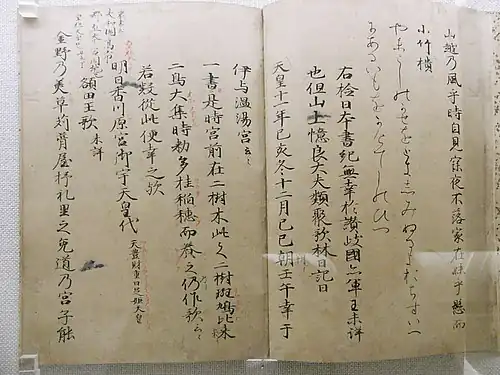 山越乃風乎時自見寐夜不落家在妹乎懸而
小竹櫃
やまこしのかせをときしみぬるよおちすいへ
にあるいもをかけてしのひつ
右檢日本書紀無幸於讃岐國亦軍王未詳
也但山上憶良大夫類聚歌林曰記曰
天皇十一年己亥冬十二月己巳朔壬午幸于
伊与温湯宮云々
一書是時宮前在二樹木此之二樹斑鳩比米
二鳥大集時勅多挂稲穂而養之乃作歌云々
若疑從此便幸之歟
明日香川原宮御宇天皇代 天豊財重日足姫天皇
額田王歌 未詳
金野乃美草苅葺屋杼礼里之兎道乃宮子能